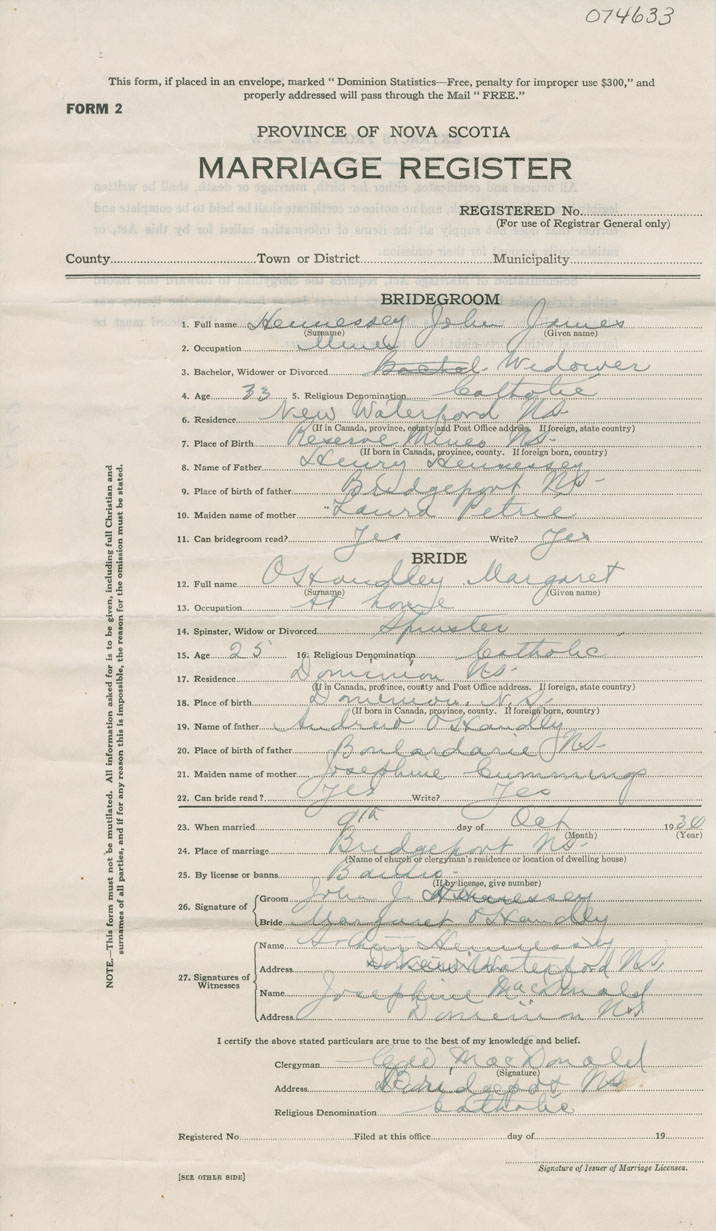 074633
This form, if placed in an envelope, marked “ Dominion Statistics—Free, penalty for improper use $300,” and
properly addressed will pass through the Mail “ FREE.”
FORM 2
PROVINCE OF NOVA SCOTIA
MARRIAGE REGISTER
REGISTERED No.
(For use of Registrar General only)
County Town or District Municipality
BRIDEGROOM
1. Full name Hennessey John James
(Surname) (Given name)
2. Occupation Miner
3. Bachelor, Widower or Divorced Bachel Widower
4. Age 33 5. Religious Denomination Catholic
6. Residence New Waterford NS.
(If in Canada, province, county and Post Office address. If foreign, state country)
7. Place of Birth Reserve Mines NS.
(If born in Canada, province, county. If foreign born, country)
8. Name of Father Henry Hennessey
9. Place of birth of father Bridgeport NS-
10. Maiden name of mother Laura Petrie
11. Can bridegroom read? Yes Write? Yes
BRIDE
12. Full name O'Handley Margaret
(Surname) (Given name)
13. Occupation At home
14. Spinster, Widow or Divorced Spinster
15. Age 25 16. Religious Denomination Catholic
17. Residence Dominion NS.
(If in Canada, province, county and Post Office address. If foreign, state country)
18. Place of birth Dominion, N.S.
(If born in Canada, province, county. If foreign born, country)
19. Name of father Andrew O'Handly
20. Place of birth of father Boulardarie NS-
21. Maiden name of mother Josephine Cummings
22. Can bride read? Yes Write? Yes
23. When married 9th day of Oct 1930
(Month) (Year)
24. Place of marriage Bridgeport NS.
(Name of church or clergyman's residence or location of dwelling house)
25. By license or banns Banns-
(If by license, give number)
26. Signature of Groom John J. Hennessey
Bride Margaret O'Handly
27. Signatures of Witnesses
Name Hennessy
Address New Waterford NS.
Name Josephine MacDonald
Address Dominion NS
I certify the above stated particulars are true to the best of my knowledge and belief.
Clergyman MacDonald
(Signature)
Address Bridgeport NS.
Religious Denomination Catholic
Registered No. Filed at this office day of 19
Signature of Issuer of Marriage Licenses.
[SEE OTHER SIDE]
NOTE.—This form must not be mutilated. All information asked for is to be given, including full Christian and
surnames of all parties, and if for any reason this is impossible, the reason for the omission must be stated.